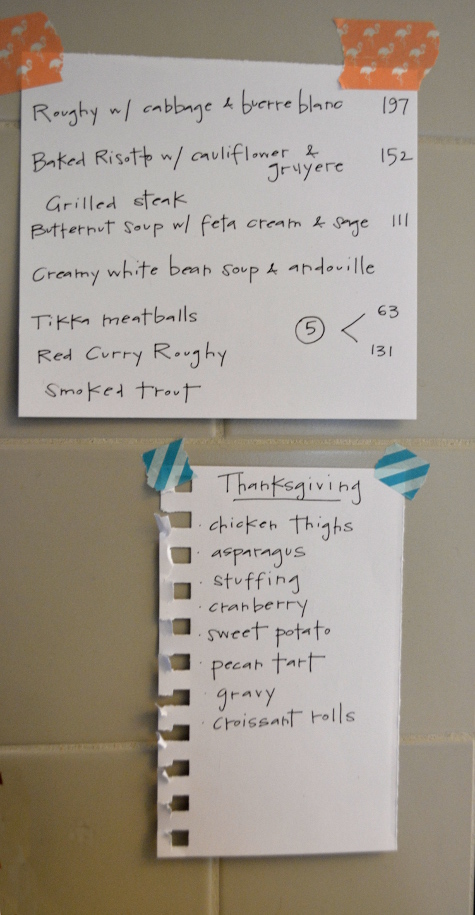 Roughy w/ cabbage & buerre blanc 197
Baked Risotto w/ cauliflower & 152
gruyere
Grilled steak
Butternut soup w/ feta cream & sage 111
Creamy white bean soup & andouille
Tikka meatballs
5 < 63
Red Curry Roughy 131
Smoked trout
Thanksgiving
· chicken thighs
· asparagus
· stuffing
· cranberry
· sweet potato
· pecan tart
· gravy
· croissant rolls